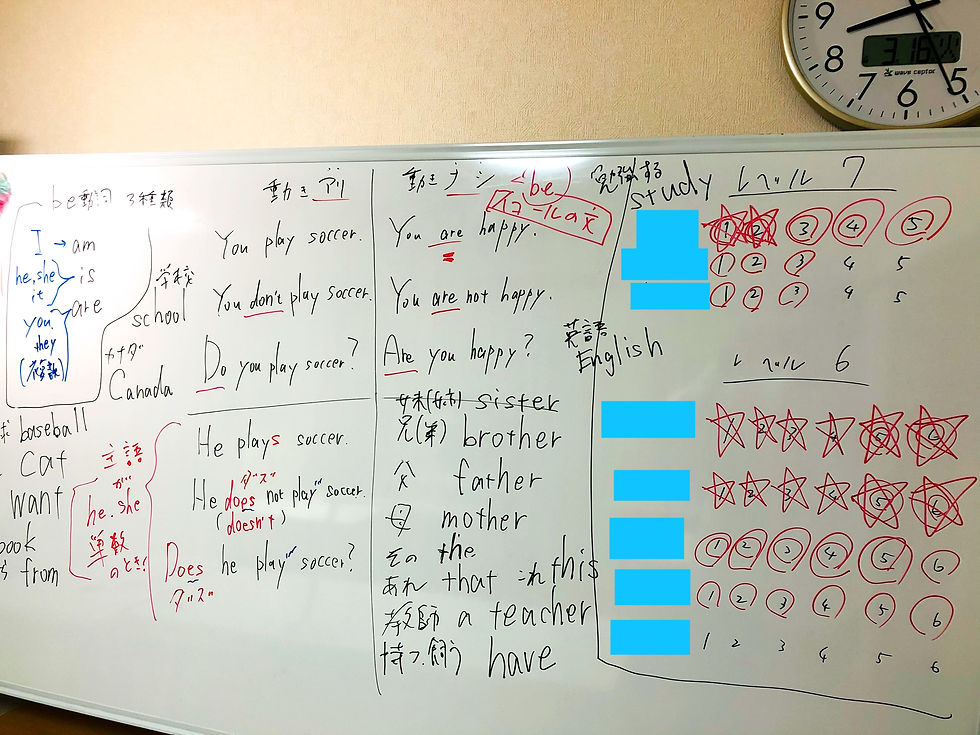 9
8
7
6
5
3.16 火
wave ceptor
be動詞 3種類
I → am
he, she
it
is
you.
they
(複数)
are
学校
school
カナダ
Canada
baseball
cat
want
book
from
主語
が
he.she
単数
のとき!
動き アリ
You play soccer.
You don't play soccer.
Do you play soccer?
He plays soccer.
ダズ
He does not play soccer.
(doesn't)
Does he play soccer?
ダズ
動き ナシ
(be)
イコールの文
You are happy.
=
You are not happy.
Are you happy?
sister
兄(弟) brother
父 father
母 mother
その the
あれ that これ this
教師 a teacher
持つ.飼う have
勉強する
study
英語
English
レベル 7
1 2 3 4 5
1 2 3 4 5
1 2 3 4 5
レベル 6
1 2 3 4 5 6
1 2 3 4 5 6
1 2 3 4 5 6
1 2 3 4 5 6
1 2 3 4 5 6